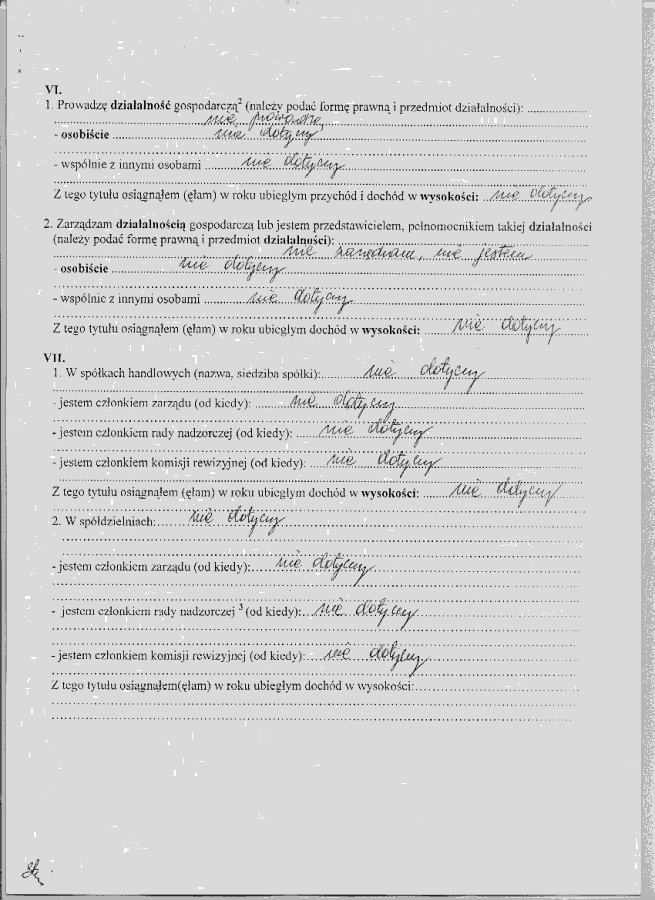 VI.
1. Prowadzę działalność gospodarczą² (należy podać formę prawną i przedmiot działalności): ..............
nie prowadzę
- osobiście ........ nie dotyczy
- wspólnie z innymi osobami ........ nie dotyczy
Z tego tytułu osiągnąłem (ęłam) w roku ubiegłym przychód i dochód w wysokości: ... nie dotyczy
2. Zarządzam działalnością gospodarczą lub jestem przedstawicielem, pełnomocnikiem takiej działalności
(należy podać formę prawną i przedmiot działalności): ........
nie zarządzam, nie jestem
- osobiście ........ nie dotyczy
- wspólnie z innymi osobami ........ nie dotyczy
Z tego tytułu osiągnąłem (ęłam) w roku ubiegłym dochód w wysokości: ...... nie dotyczy
VII.
1. W spółkach handlowych (nazwa, siedziba spółki):........ nie dotyczy
- jestem członkiem zarządu (od kiedy): ........ nie dotyczy
- jestem członkiem rady nadzorczej (od kiedy): ...... nie dotyczy
- jestem członkiem komisji rewizyjnej (od kiedy): .... nie dotyczy
Z tego tytułu osiągnąłem (ęłam) w roku ubiegłym dochód w wysokości: ...... nie dotyczy
2. W spółdzielniach:...... nie dotyczy
- jestem członkiem zarządu (od kiedy):..... nie dotyczy
- jestem członkiem rady nadzorczej ³ (od kiedy):... nie dotyczy
- jestem członkiem komisji rewizyjnej (od kiedy):.... nie dotyczy
Z tego tytułu osiągnąłem(ęłam) w roku ubiegłym dochód w wysokości:..............................